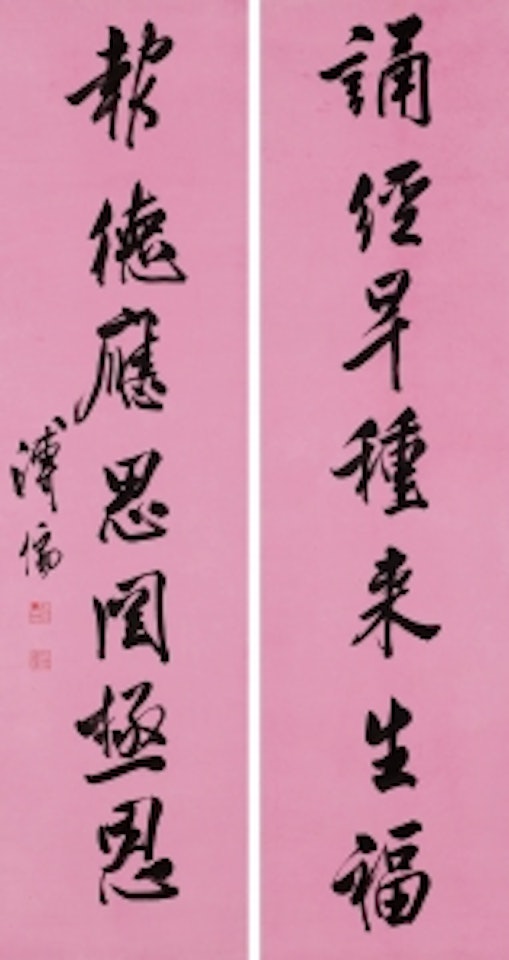 誦經早種来生福
報德應思罔極恩
溥儒